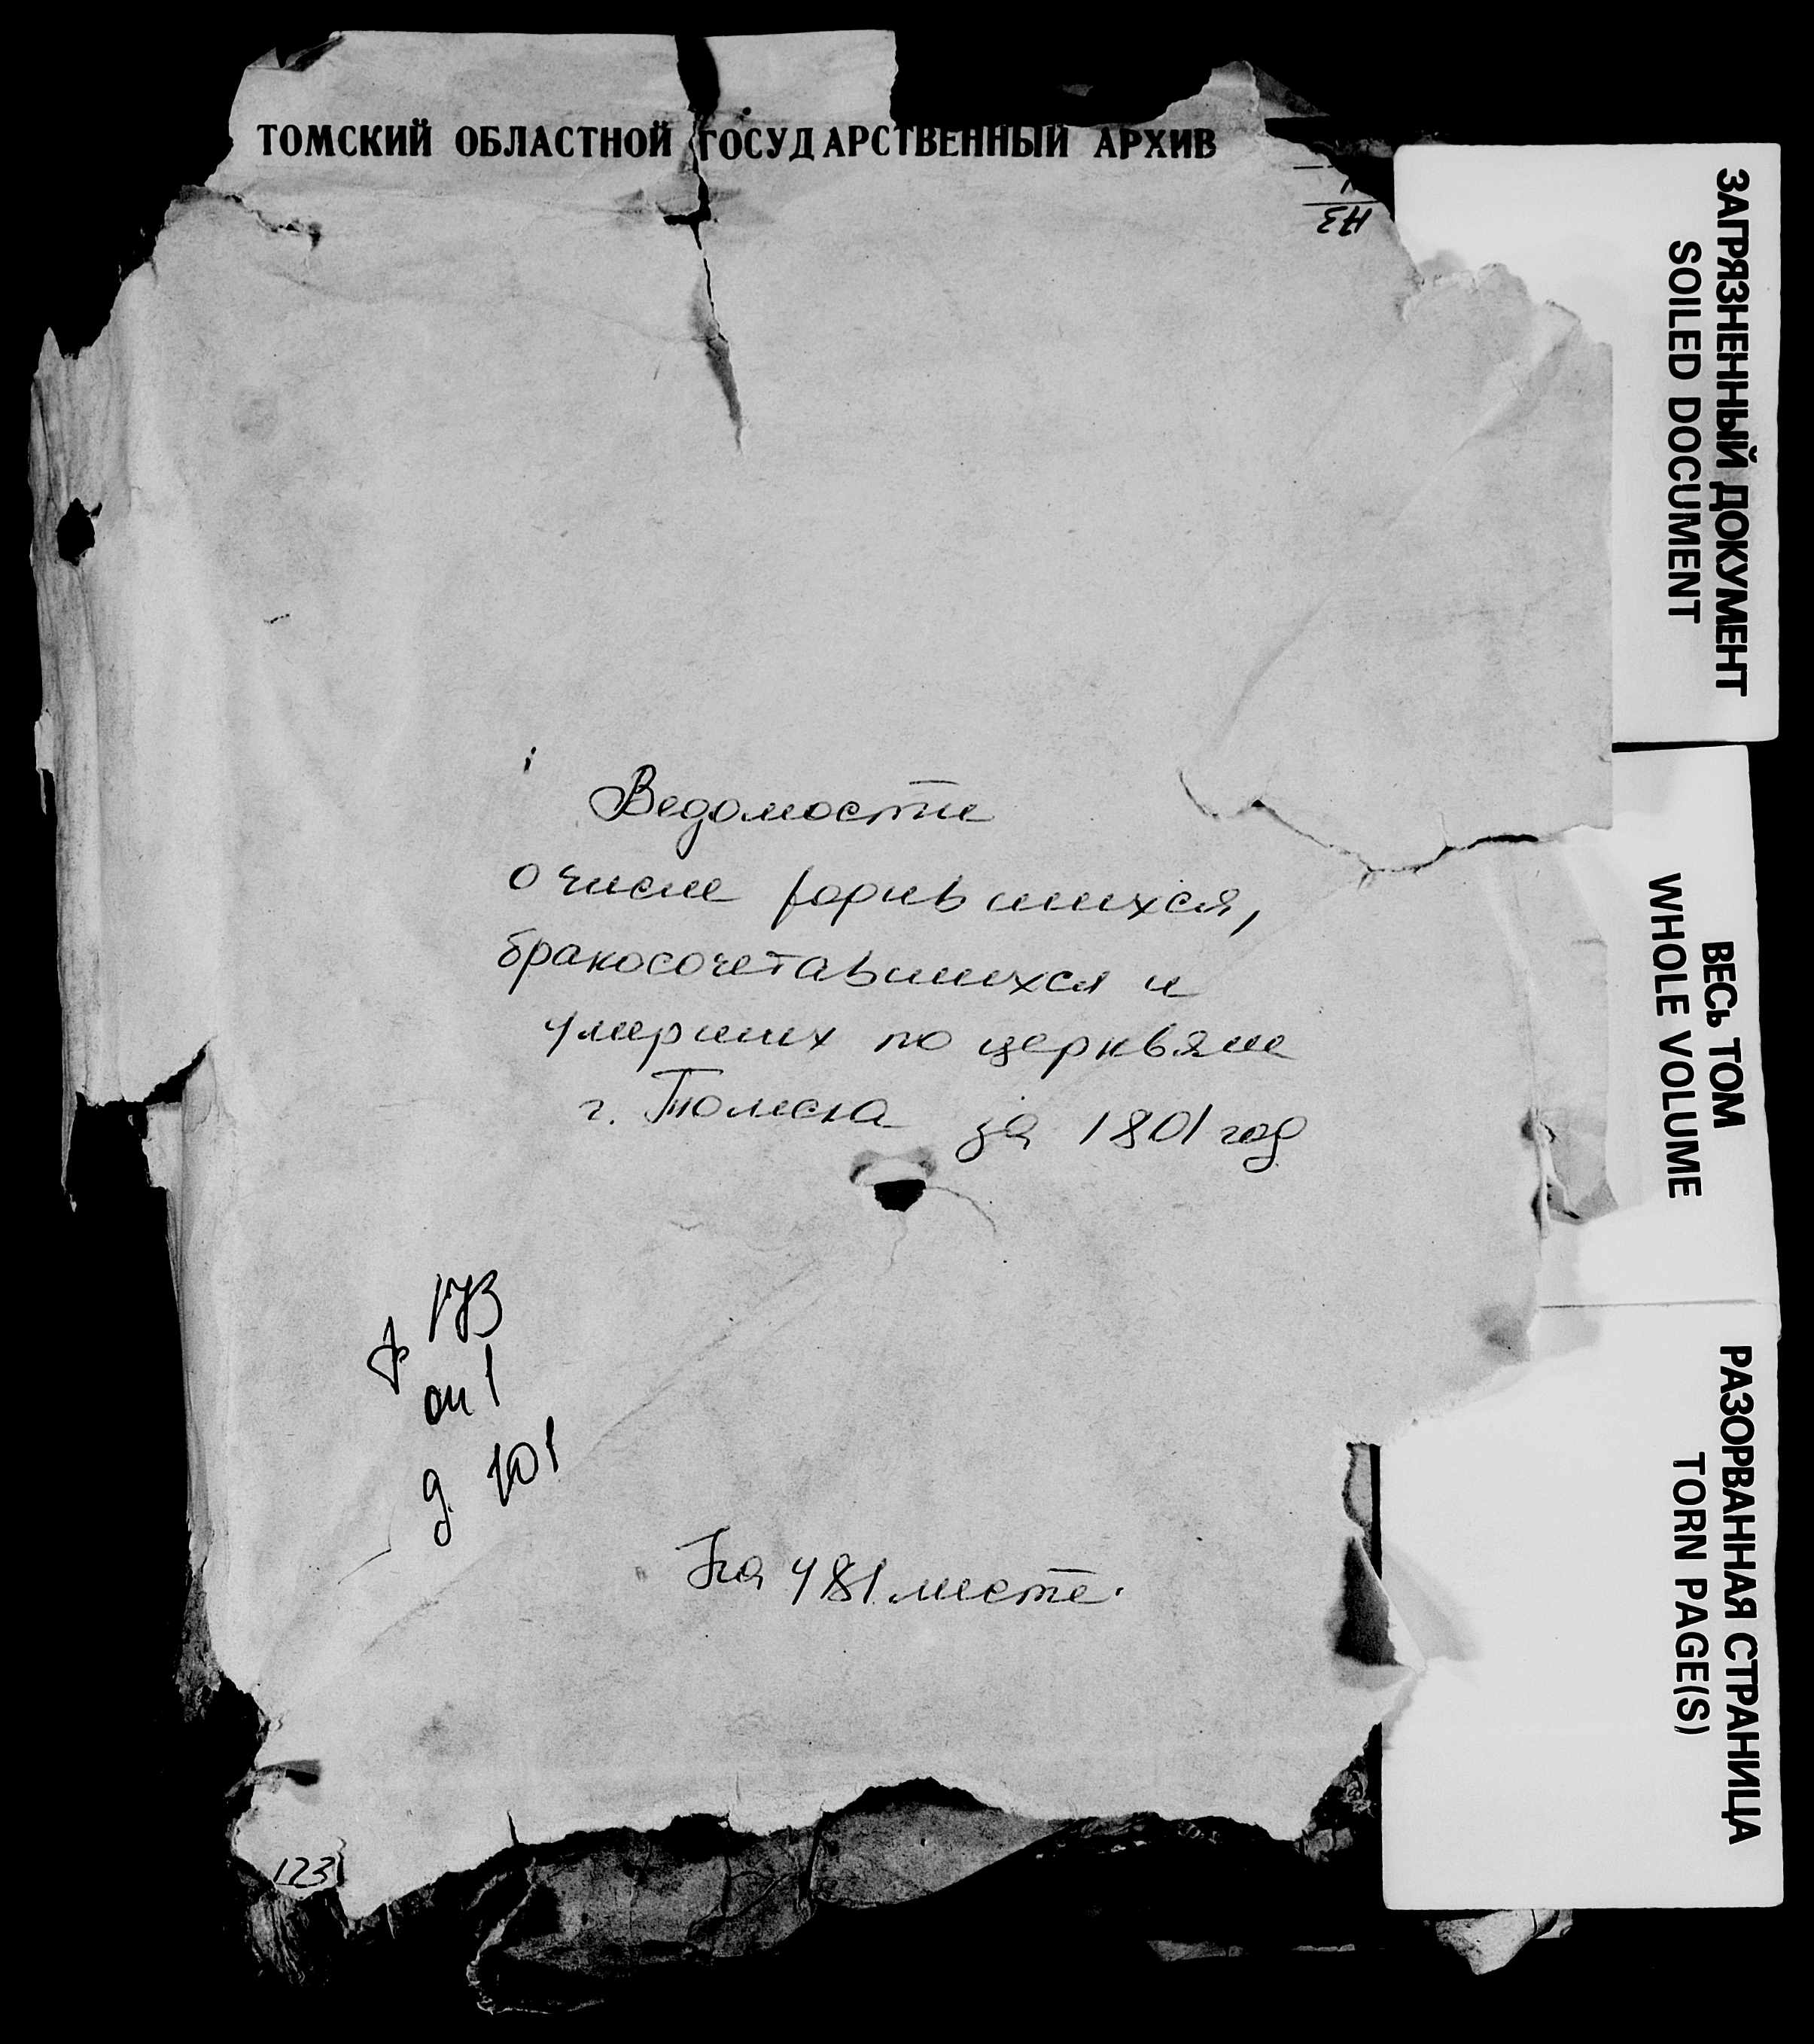 ТОМСКИЙ ОБЛАСТНОЙ ГОСУДАРСТВЕННЫЙ АРХИВ
173
Ведомости
о числе родившихся,
бракосочетавшихся и
умерших по церквям
г. Томска за 1801 год
ф 173
оп 1
д 101
На 481 листе.
123
ЗАГРЯЗНЕННЫЙ ДОКУМЕНТ
SOILED DOCUMENT
ВЕСЬ ТОМ
WHOLE VOLUME
РАЗОРВАННАЯ СТРАНИЦА
TORN PAGE(S)